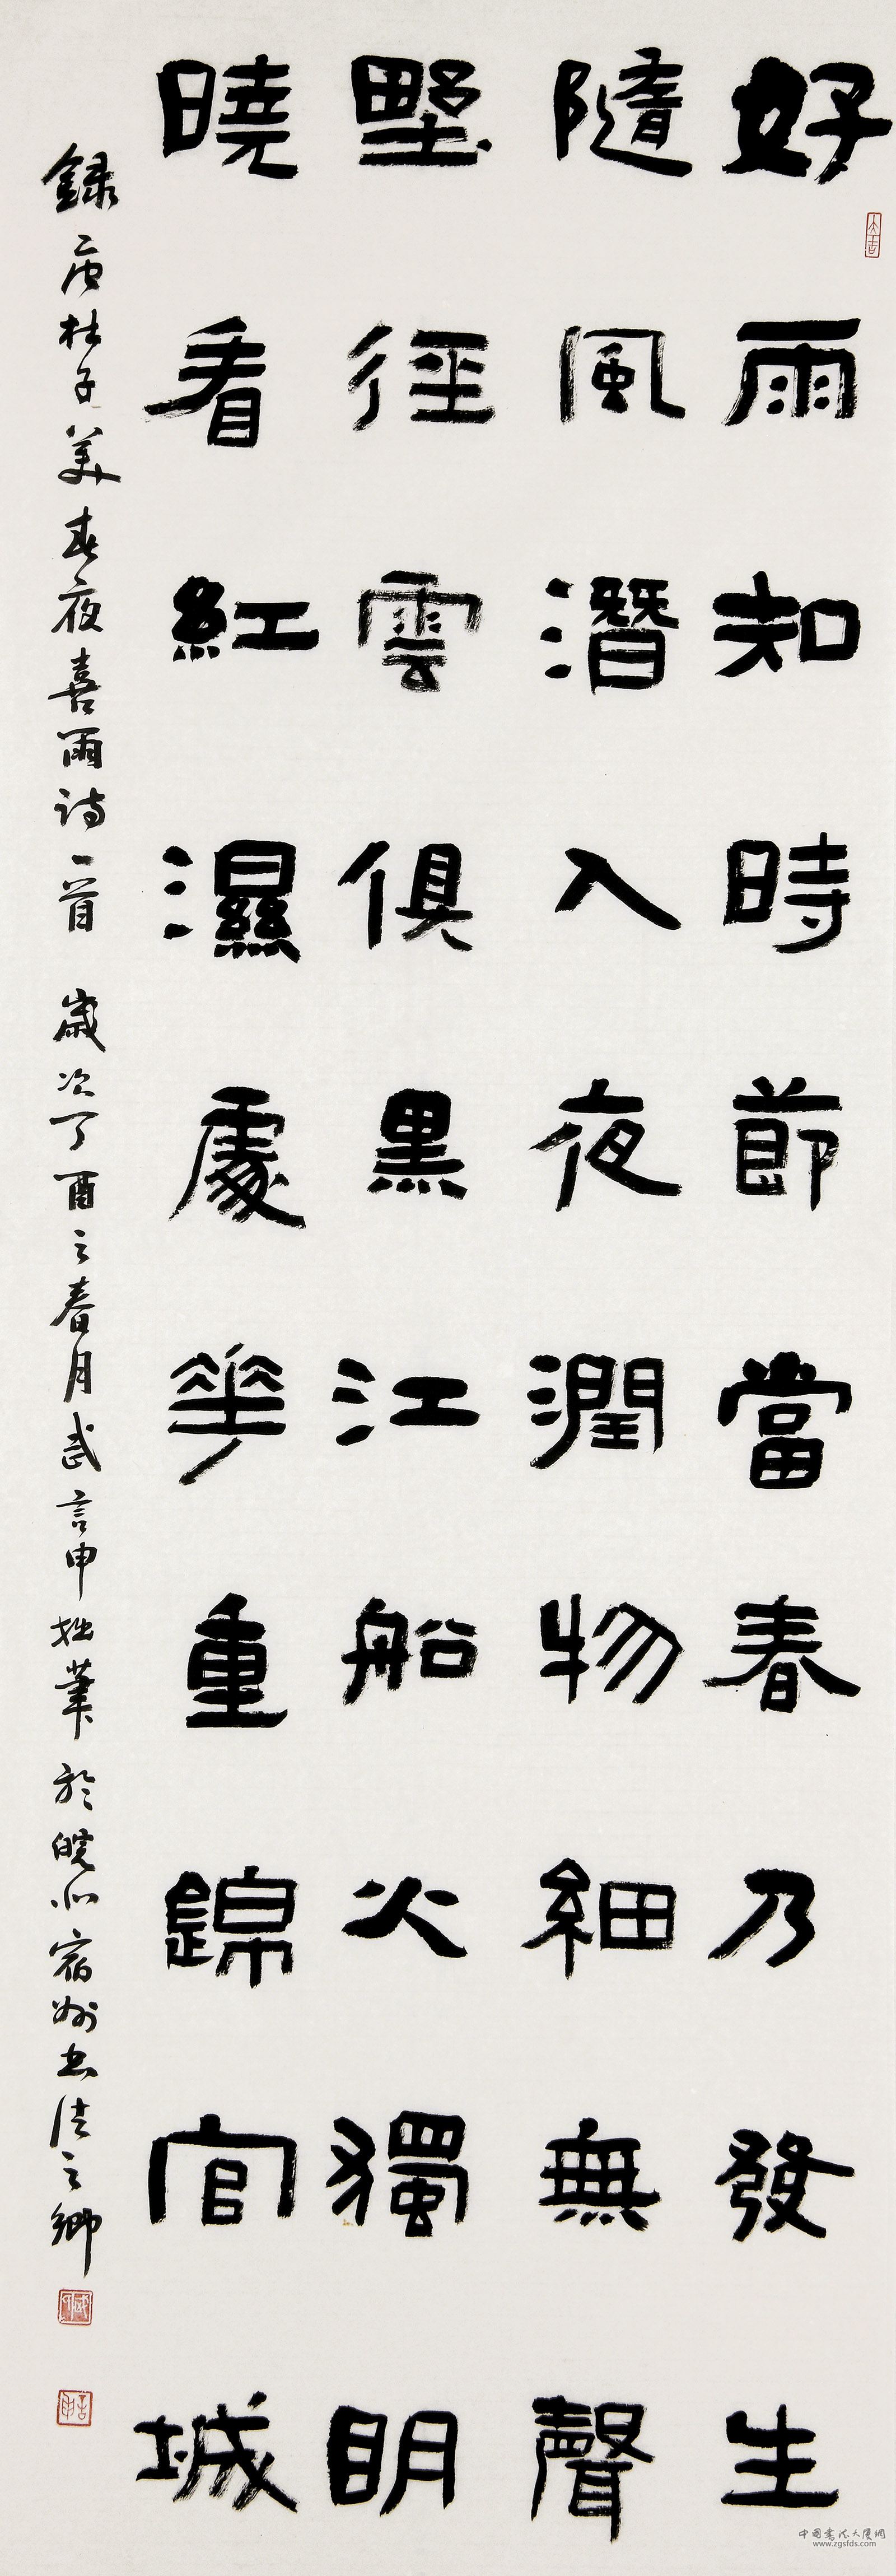 好雨知時節當春乃發生
隨風潛入夜潤物細無聲
野徑雲俱黑江船火獨明
曉看紅濕處花重錦官城
錄唐杜子美春夜喜雨詩一首 歲次丁酉之春月武言申拙筆於皖北宿州書法之鄉
大吉
中国書法大厦網
www.zgsfds.com